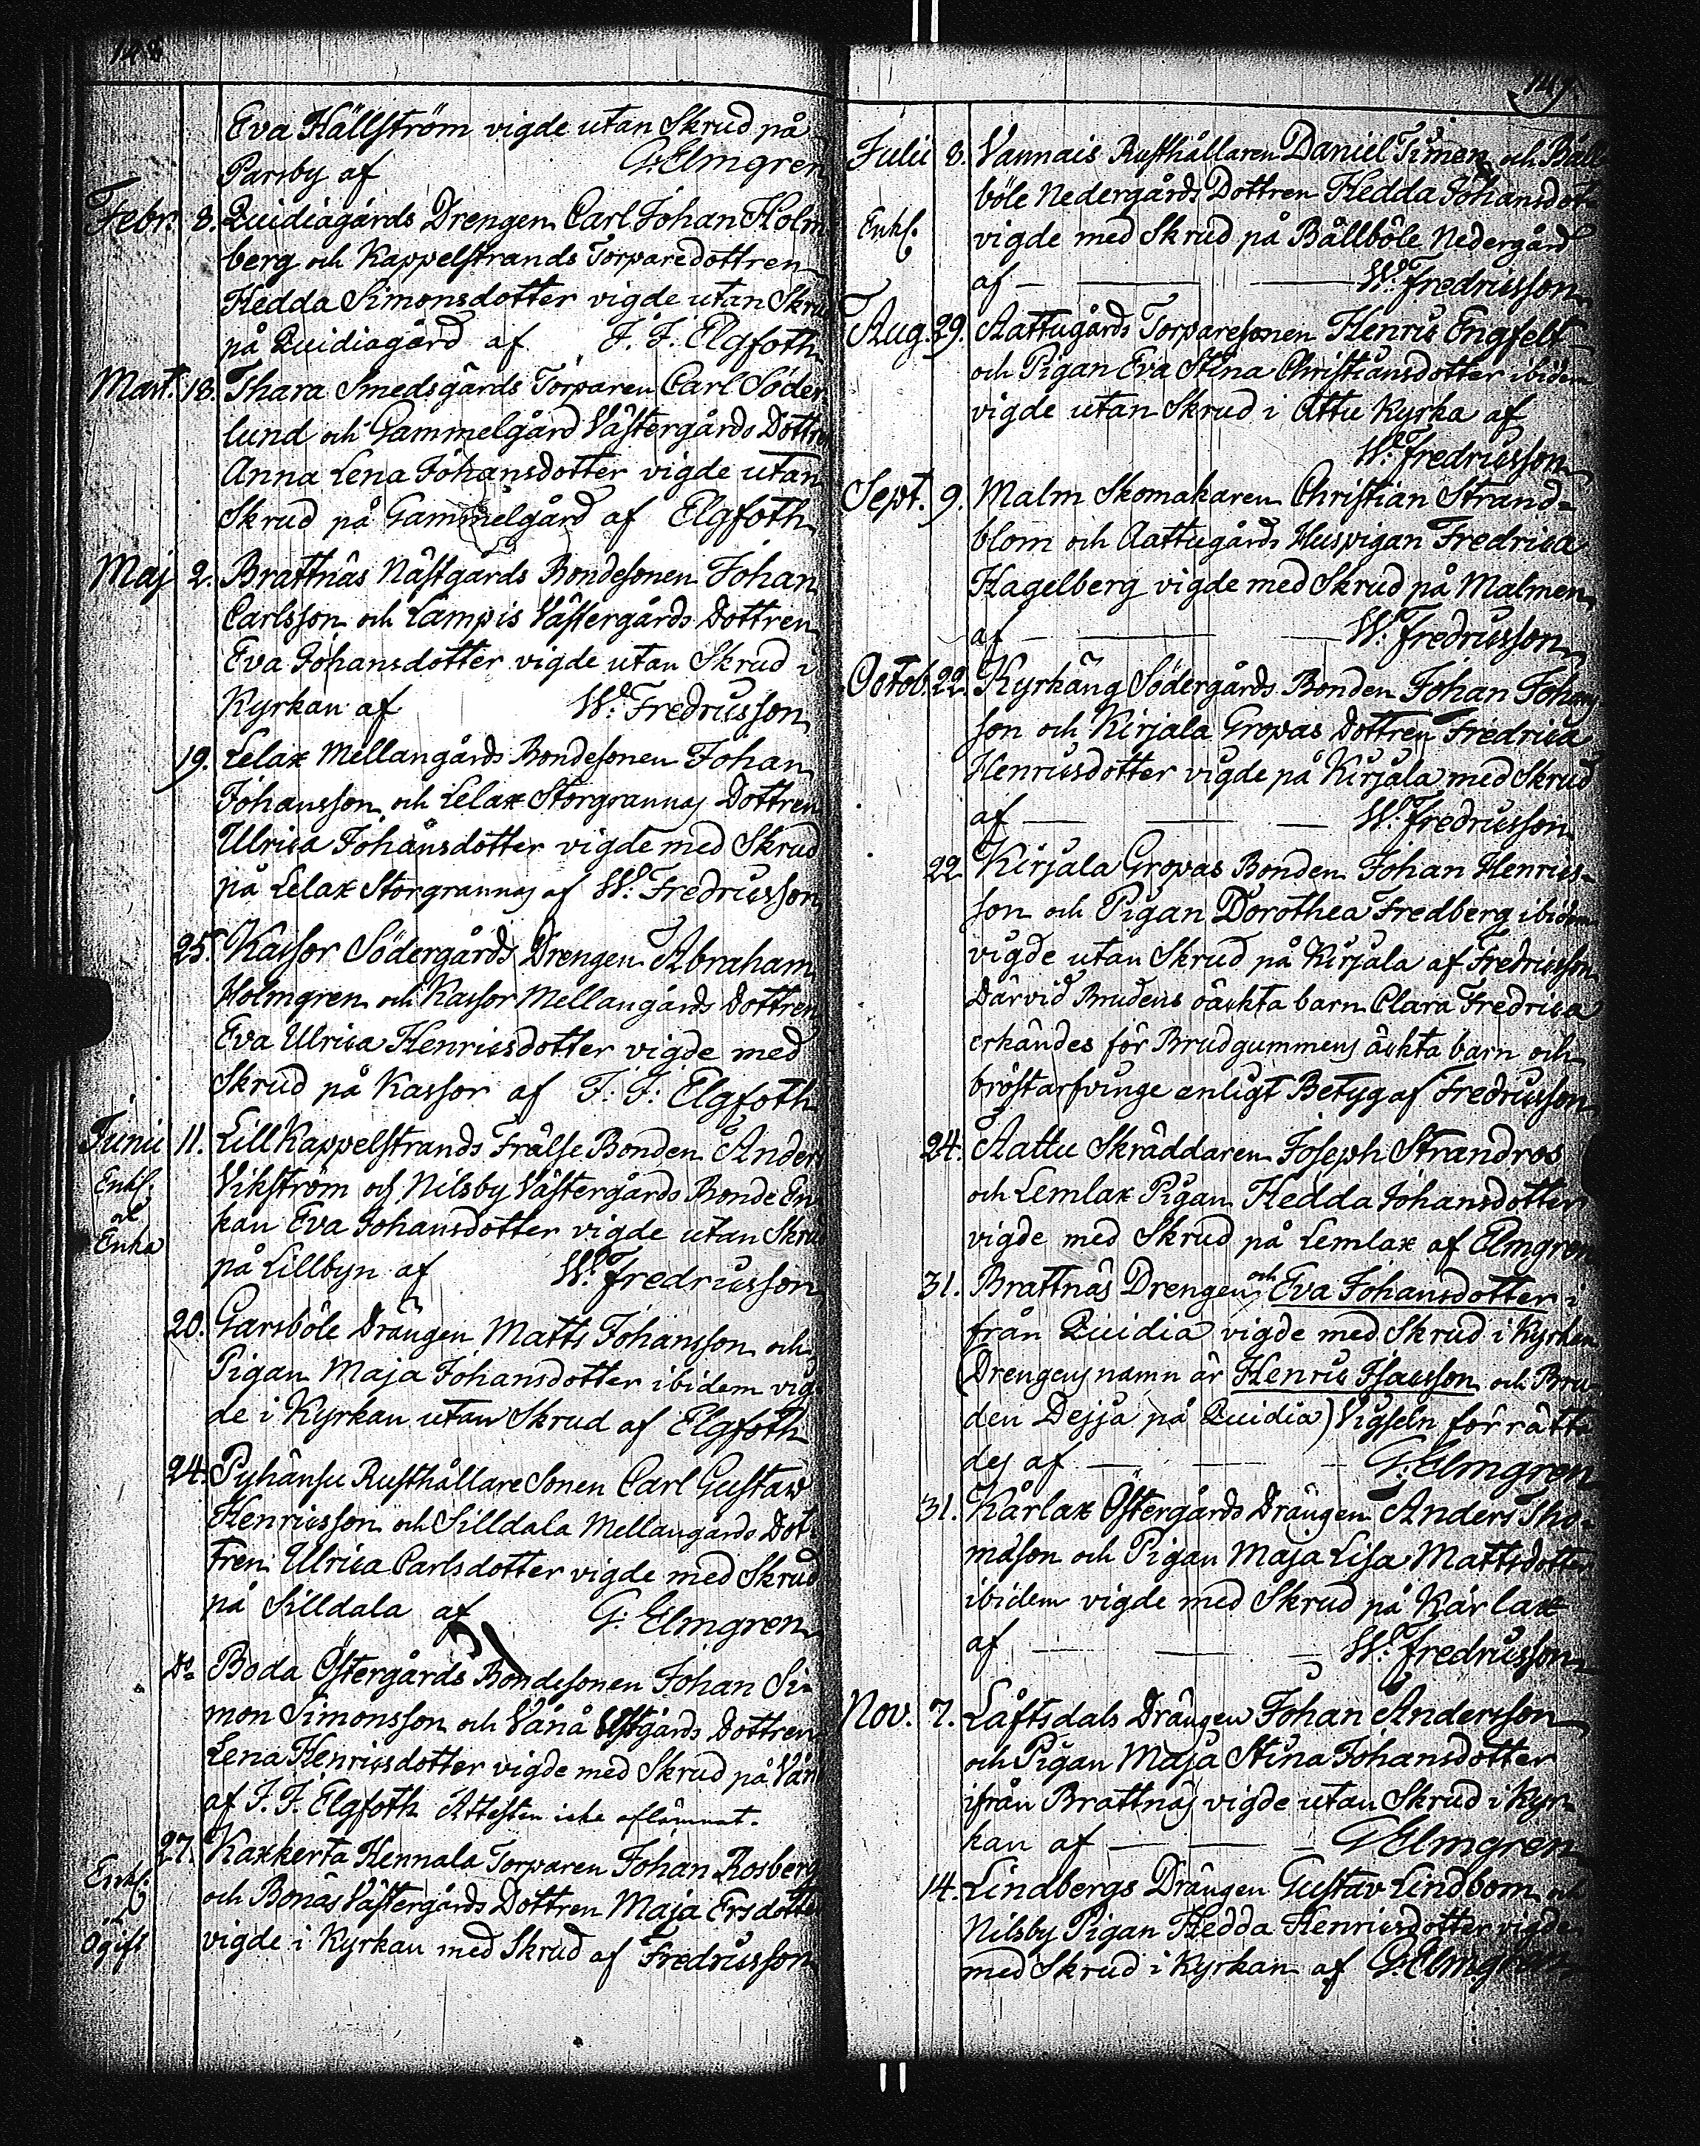 148
Eva Hällström vigde utan Skrud på
Parsby af G. Elmgren
Febr. 8. Qvidiagårds Drengen Carl Johan Holm
berg och Kappelstrands Torparedottren
Hedda Simonsdotter vigde utan Skrud
på Qvidiagård af J. F. Elgfoth
Mart. 18. Thara Smedsgårds Torparen Carl Söder
lund och Gammelgård Västergårds Dottren
Anna Lena Johansdotter vigde utan
Skrud på Gammelgård af Elgfoth
Maj 2. Brattnäs Nästgårds Bondesonen Johan
Carlsson och Lampis Västergårds Dottren
Eva Johansdotter vigde utan Skrud i
Kyrkan af W. Fredricsson
19. Lelax Mellangårds Bondesonen Johan
Johansson och Lelax Storgrannas Dottren
Ulrica Johansdotter vigde med Skrud
på Lelax Storgrannas af W. Fredricsson
25. Kassor Södergårds Drengen Abraham
Holmgren och Kassor Mellangårds Dottren
Eva Ulrica Henricsdotter vigde med
Skrud på Kassor af J. F. Elgfoth
Junii 11. Lill Kappelstrands Frälse Bonden Anders
Enkl. Vikström och Nilsby Västergårds Bonde En
Enka kan Eva Johansdotter vigde utan Skrud
på Lillbyn af W. Fredricsson
20. Garsböle Drängen Matts Johansson och
Pigan Maja Johansdotter ibidem vig
de i Kyrkan utan Skrud af Elgfoth
24. Pyhänsu Rusthållare Sonen Carl Gustaw
Henricsson och Silldala Mellangårds Dot-
tren Ulrica Carlsdotter vigde med Skrud
på Silldala af G. Elmgren
Do Boda Östergårds Bondesonen Johan Si-
mon Simonsson och Vånå Dottren
Lena Henricsdotter vigde med Skrud på Vån
af J. F. Elgfoth Attesten icke aflämnat.
27. Kaxkerta Hennala Torparen Johan Rosberg
Enkl. och Bonäs Västergårds Dottren Maja Ersdotter
Ogift vigde i Kyrkan med Skrud af Fredricsson
149
Julii 8. Vannais Rusthållaren Daniel Simen och Båll
böle Nedergårds Dottren Hedda Johansdot
Enkl. vigde med Skrud på Bållböle Nedergård
af — W. Fredricsson
Aug. 29. Aattugårds Torparesonen Henric Engfelt
och Pigan Eva Stina Christiansdotter ibidem
vigde utan Skrud i Attu Kyrka af
W. Fredricsson
Sept. 9. Malm Skomakaren Christian Strand-
blom och Aattugårds Huspigan Fredrica
Hagelberg vigde med Skrud på Malmen
af — W. Fredricsson
Octob. 22. Kyrkäng Södergårds Bonden Johan Johans
son och Kirjala Gropas Dottren Fredrica
Henricsdotter vigde på Kirjala med Skrud
af — W. Fredricsson
22 Kirjala Gropas Bonden Johan Henrics-
son och Pigan Dorothea Fredberg ibidem
vigde utan Skrud på Kirjala af Fredricsson
Därvid Brudens oäckta barn Clara Fredrica
erkändes för Brudgummens äckta barn och
bröstarfvinge enligt Betyg af Fredricsson
24. Aattu Skräddaren Joseph Strandros
och Lemlax Pigan Hedda Johansdotter
vigde med Skrud på Lemlax af Elmgren
31. Brattnäs Drengen och Eva Johansdotter i
från Qvidia vigde med Skrud i Kyrkan
(Drengens namn är Henric Isacsson och Bru-
den Dejja på Qvidia) Vigseln förrätta
des af — G. Elmgren
31. Kårlax Östergårds Drängen Anders Tho-
mason och Pigan Maja Lisa Mattsdotter
ibidem vigde med Skrud på Kårlax
af — W. Fredricsson
Nov. 7. Låftsdals Drängen Johan Andersson
och Pigan Maja Stina Johansdotter
ifrån Brattnäs vigde utan Skrud i Kyr-
kan af — G Elmgren
14. Lindbergs Drängen Gustav Lindbom och
Nilsby Pigan Hedda Henricsdotter vigde
med Skrud i Kyrkan af G. Elmgren